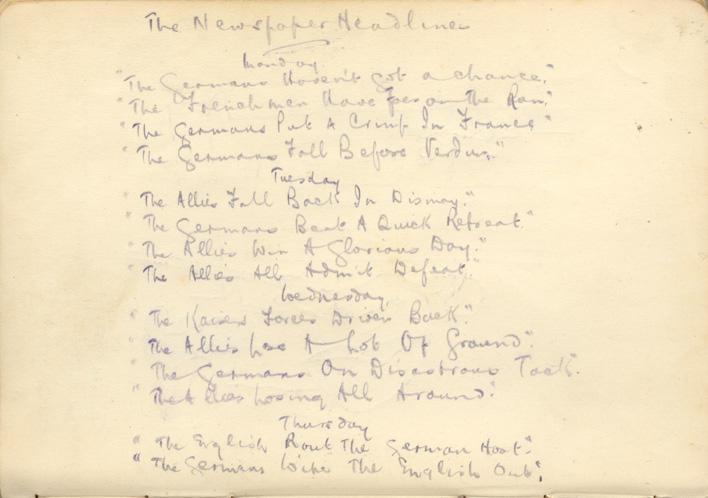 The Newspaper Headlines
Monday
"The Germans Haven't got a chance."
"The Frenchmen Have Foes on The Run."
"The Germans Put A Crimp In France"
"The Germans Fall Before Verdun."
Tuesday
"The Allies Fall Back In Dismay."
"The Germans Beat A Quick Retreat."
"The Allies Win A Glorious Day."
"The Allies All Admit Defeat."
Wednesday
"The Kaiser Forces Driven Back."
"The Allies Lose A Lot Of Ground."
"The Germans On Disastrous Tack."
"The Allies Losing All Around."
Thursday
"The English Rout The German Host."
"The Germans Wipe The English Out."